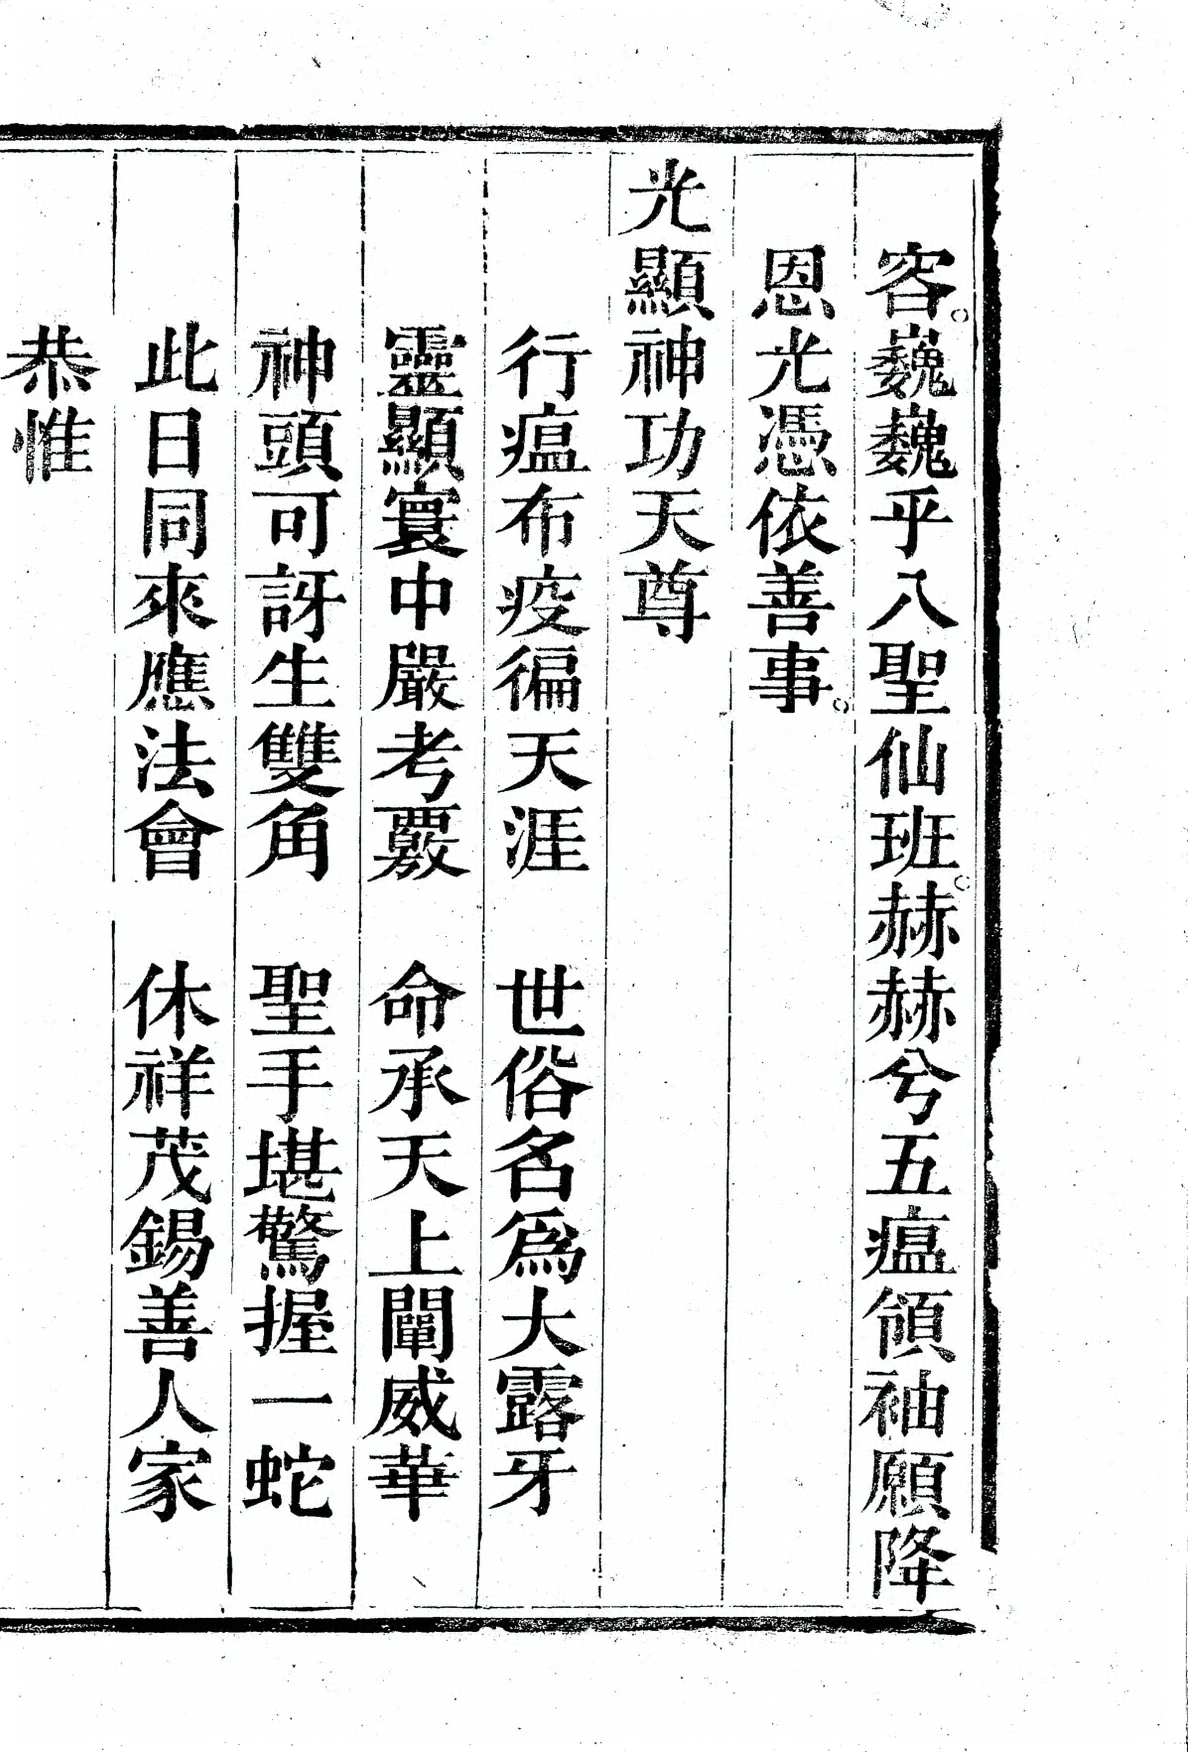 容。巍巍乎八聖仙班。赫赫兮五瘟領袖願降
恩光憑依善事。
光顯神功天尊
行瘟布疫徧天涯　世俗名爲大露牙
靈顯寰中嚴考覈　命承天上闡威華
神頭可訝生雙角　聖手堪驚握一蛇
此日同來應法會　休祥茂錫善人家
恭惟